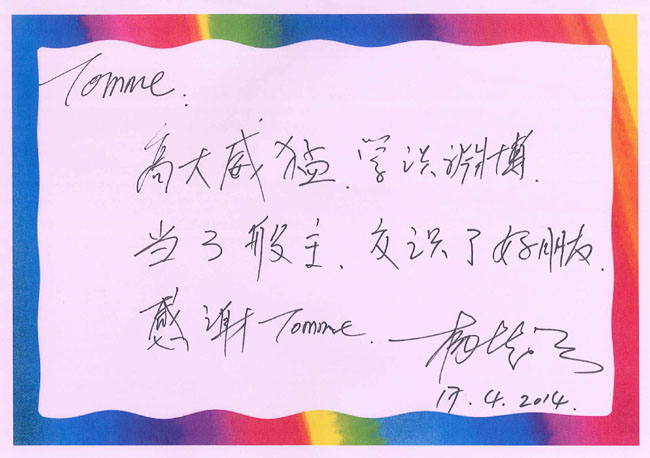 Tomme:
高大威猛、学识渊博、
当了股主、交识了好朋友、
感谢Tomme.
17.4.2014.